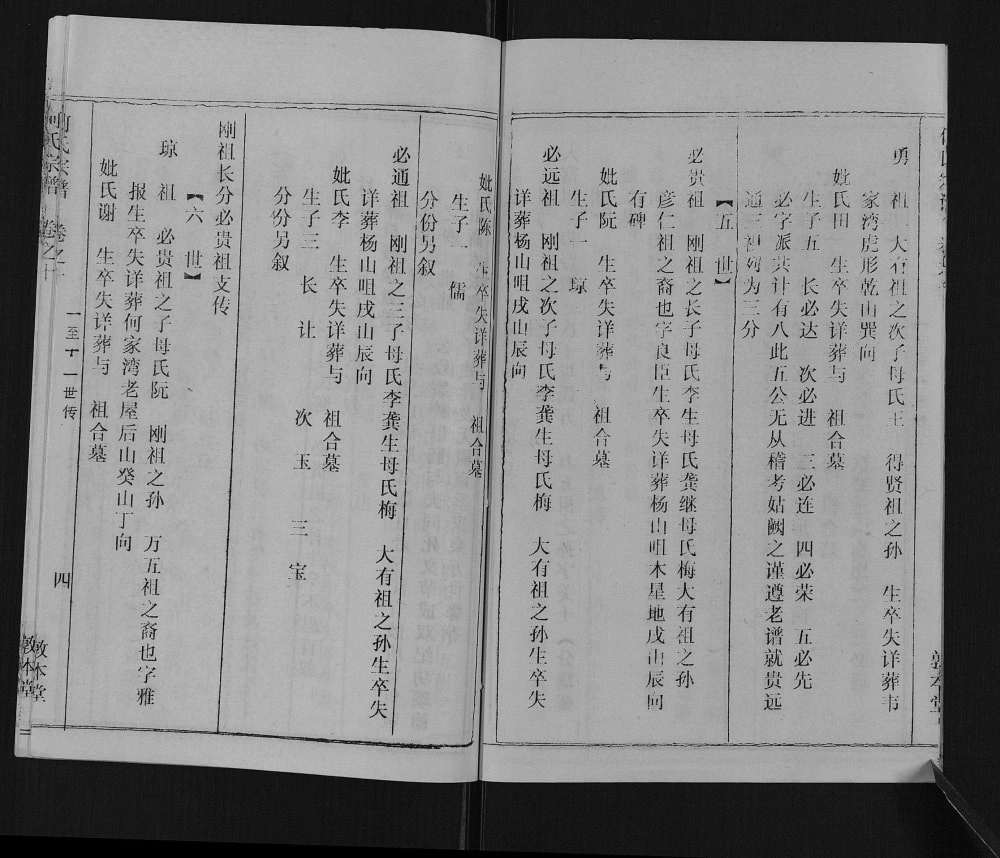 勇　祖　大有祖之次子母氏王　得贤祖之孙　生卒失详葬韦
家湾虎形乾山巽向
妣氏田　生卒失详葬与　祖合墓
生子五　长必达　次必进　三必连　四必荣　五必先
必字派共计有八此五公无从稽考姑阙之谨遵老谱就贵远
通三祖列为三分
【五　世】
必贵祖　刚祖之长子母氏李生母氏龚继母氏梅大有祖之孙
彦仁祖之裔也字良臣生卒失详葬杨山咀木星地戌山辰向
有碑
妣氏阮　生卒失详葬与　祖合墓
生子一　琼
必远祖　刚祖之次子母氏李龚生母氏梅　大有祖之孙生卒失
详葬杨山咀戌山辰向
妣氏陈　生卒失详葬与　祖合墓
生子一　儒
分份另叙
必通祖　刚祖之三子母氏李龚生母氏梅　大有祖之孙生卒失
详葬杨山咀戌山辰向
妣氏李　生卒失详葬与　祖合墓
生子三　长　让　次　玉　三　宝
分份另叙
刚祖长分必贵祖支传
【六　世】
琼　祖　必贵祖之子母氏阮　刚祖之孙　万五祖之裔也字雅
报生卒失详葬何家湾老屋后山癸山丁向
妣氏谢　生卒失详葬与　祖合墓
一至十一世传
四
何氏宗谱　卷之十
敦本堂